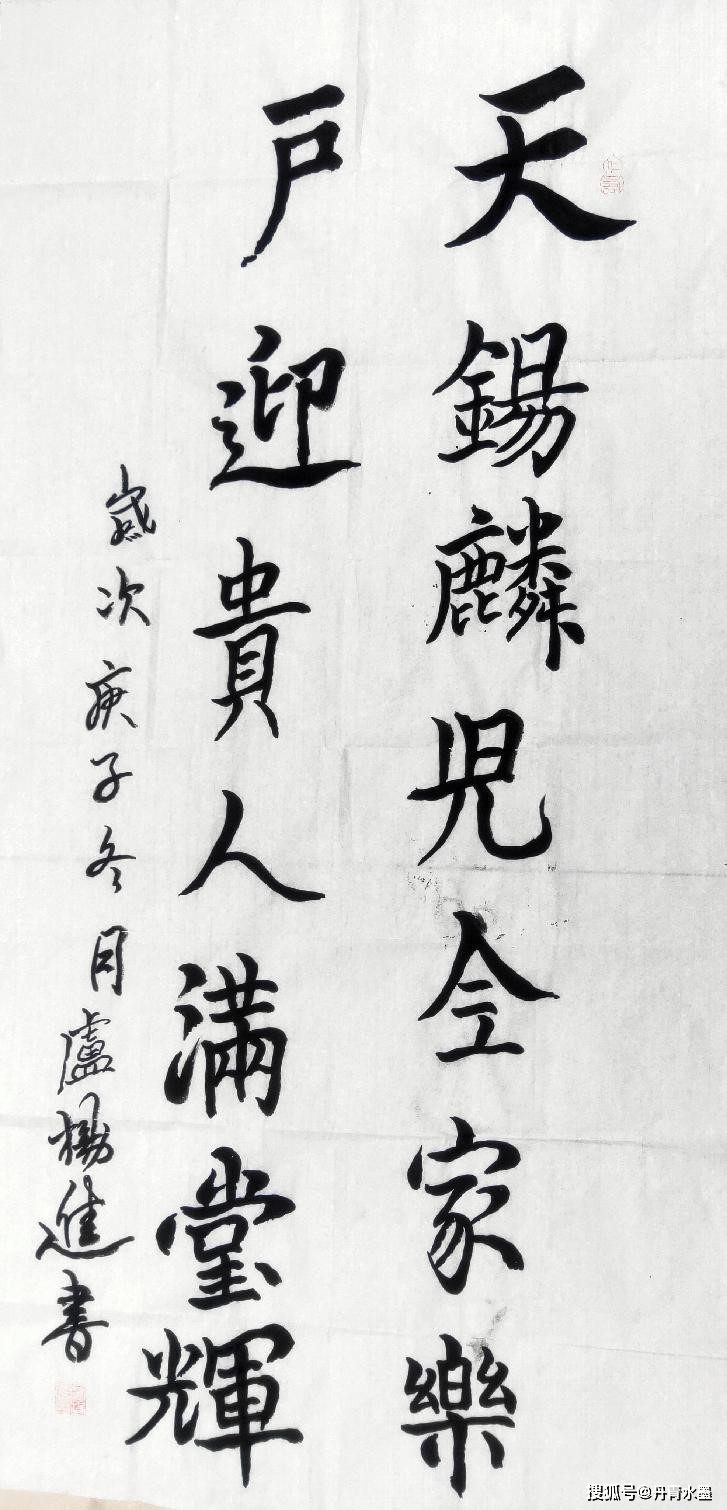 天錫麟児仝家樂
戶迎貴人滿堂輝
歲次庚子冬月盧楊進書
搜狐号@丹青水墨